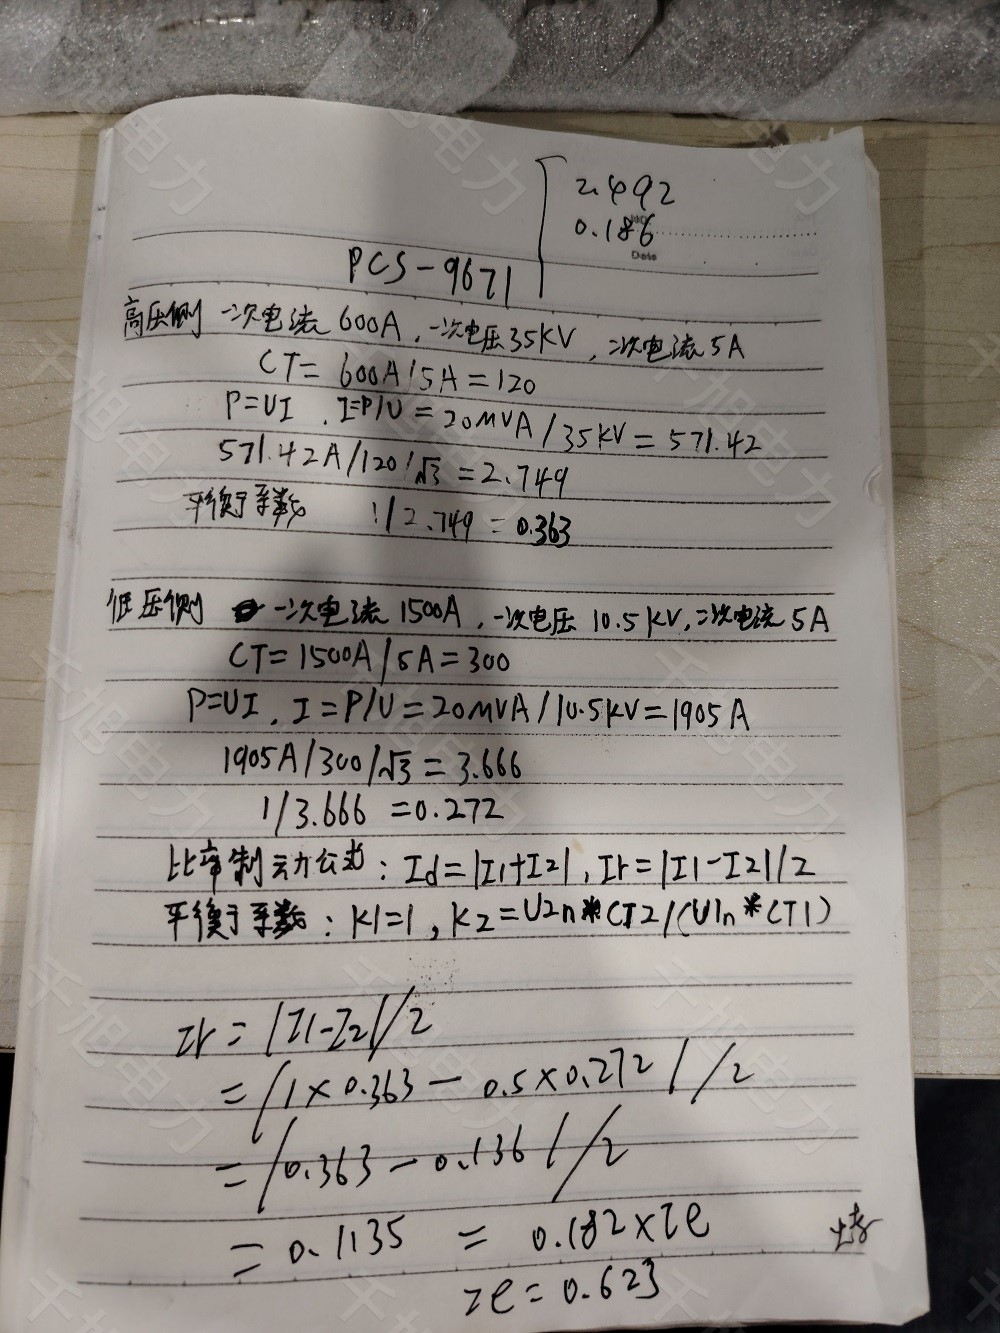 2.492
0.186
No
Date
PCS-9671
高压侧 一次电流600A，一次电压35KV，二次电流5A
CT= 600A/5A=120
P=UI，I=P/U=20MVA/35KV=571.42
571.42A/120/√3=2.749
平衡系数 1/2.749=0.363
低压侧 一次电流1500A，一次电压10.5KV，二次电流5A
CT=1500A/5A=300
P=UI，I=P/U=20MVA/10.5KV=1905A
1905A/300/√3=3.666
1/3.666=0.272
比率制动公式：Id=|I1+I2|，Ir=|I1-I2|/2
平衡系数：K1=1，K2=U2n*CT2/(U1n*CT1)
Ir=|I1-I2|/2
=|1×0.363-0.5×0.272|/2
=|0.363-0.136|/2
=0.1135 = 0.182×Ie
Ie=0.623
千旭电力